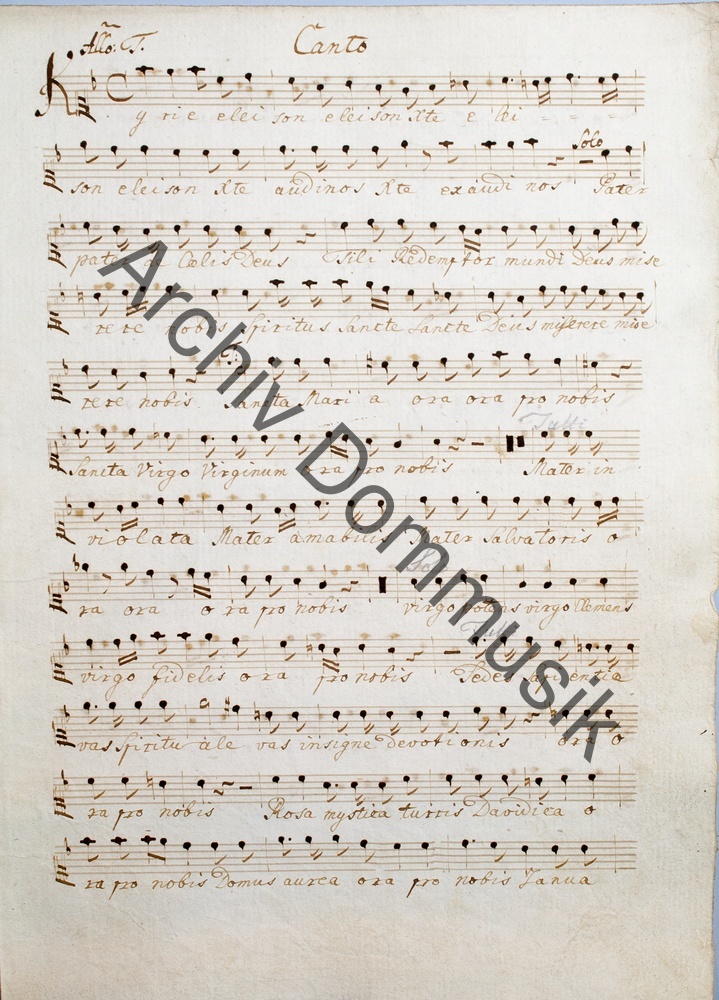 Allo. T. Canto
Ky rie elei son eleison Xte e lei
Solo
son eleison Xte audinos Xte exaudi nos Pater
pater de Cœlis Deus Fili Redemptor mundi Deus mise
rere nobis Spiritus Sancte Sancte Deus miserere mise
rere nobis Sancta Mari a ora ora pro nobis
Tutti
Sancta Virgo Virginum ora pro nobis Mater in
violata Mater amabilis Mater Salvatoris o
ra ora o ra pro nobis virgo potens virgo Clemens
virgo fidelis o ra pro nobis Sedes Sapientia
vas Spiritu ale vas insigne devotionis ora o
ra pro nobis Rosa mystica turris Davidica o
ra pro nobis Domus aurea ora pro nobis Janua
Archiv Dommusik